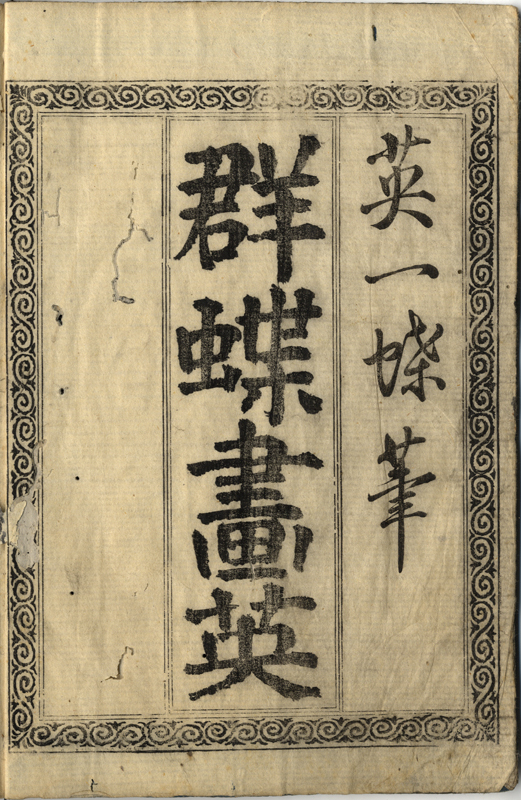 英一蝶筆
群蝶畫英